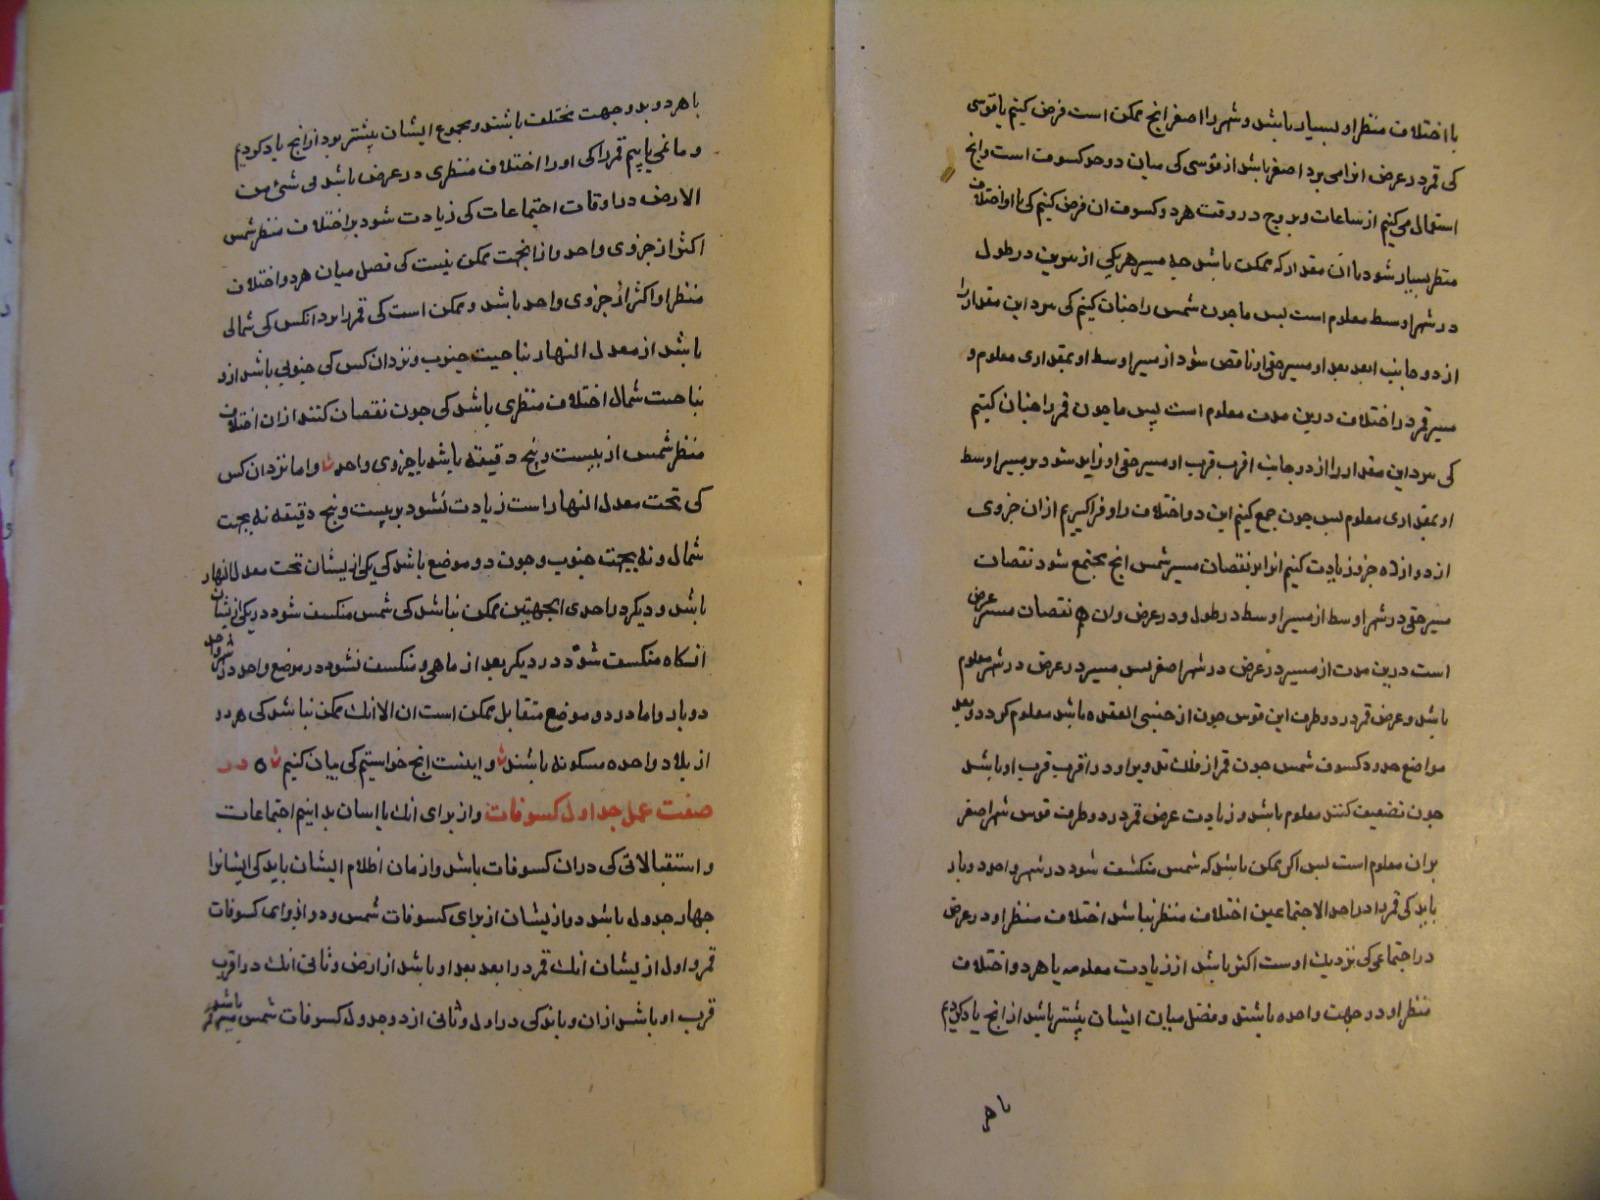 با اختلاف منظر او بسیار باشد و شهر را اصغر انچ ممکن است فرض کنیم یا قوسی
کی قمر در عرض انرا می برد اصغر باشد از قوسی کی میان دو حد کسوفت است وانچ
استعمال می کنیم از ساعات و بروج در وقت هر دو کسوفت ان فرض کنیم کی با او اختلاف
منظر بسیار شود با ان مقدار که ممکن باشد جه مسیر هر یکی از نیرین در طول
در شهر اوسط معلوم است بس ما جون شمس را جنان کنیم کی برد این مقدار را
از دو جانب ابعد بعد او مسیر حقی او ناقص شود از مسیر اوسط او بمقداری معلوم و
مسیر قمر در اختلاف درین مدت معلوم است بس ما جون قمر را جنان کنیم
کی برد این مقدار را از دو جانب اقرب قرب او مسیر حقی او زاید شود بر مسیر اوسط
او بمقداری معلوم بس جون جمع کنیم این دو اختلاف را و فراکیریم از ان جزوی
از دوازده جزو زیادت کنیم انرا بر نقصات مسیر شمس انچ مجتمع شود نقصات
مسیر حقی در شهر اوسط از مسیر اوسط در طول و در عرض وان نقصات مسیر عرض
است درین مدت از مسیر در عرض در شهر اصغر بس مسیر در عرض در شهر معلوم
باشد و عرض قمر در دو طرف این قوس جون از جنبی العقده باشد معلوم کردد و بعد
مواضع حدود کسوف شمس جون قمر از فلک تدویر او در اقرب قرب او باشد
جون تضعیف کنند معلوم باشد و زیادت عرض قمر در دو طرف قوس شهر اصغر
بر ان معلوم است بس اکر ممکن باشد که شمس منکسف شود در شهر واحد دوبار
باید کی قمر را در احد الاجتماعین اختلاف منظر نباشد اختلاف منظر او در عرض
در اجتماعی کی نزدیک اوست اکثر باشد از زیادت معلومه یا هر دو اختلاف
منظر او در جهت واحده باشند و فضل میان ایشان بیشتر باشد از انچ یاد کردیم
یا هر
یا هر دو بدو جهت مختلف باشند و مجموع ایشان بیشتر بود از انچ یاد کردیم
و ما نمی یابیم قمر را کی او را اختلاف منظری در عرض باشد فی شیٔ من
الارض در اوقات اجتماعات کی زیادت شود بر اختلاف منظر شمس
اکثر از جزوی واحد و از انجهت ممکن نیست کی فصل میان هر دو اختلاف
منظر او اکثر از جزوی واحد باشد و ممکن است کی قمر را بود انکس کی شمالی
باشد از معدل النهار بناحیت جنوب و نزد ان کس کی جنوبی باشد از و
بناحیت شمال اختلاف منظری باشد کی جون نقصان کنند از ان اختلاف
منظر شمس از بیست و پنج دقیقه باشد یا جزوی واحد و اما نزد ان کس
کی تحت معدل النهار است زیادت نشود بر بیست و پنج دقیقه نه بجهت
شمال و نه بجهت جنوب و جون دو موضع باشد کی یکی از یشان تحت معدل النهار
باشد و دیکر در احدی الجهتین ممکن نباشد کی شمس منکسف شود در یکی از یشان
انکاه منکسف شود در دیکر بعد از ماهی و منکسف نشود در موضع واحد در شهر واحد
دو بار و اما در دو موضع متقابل ممکن است ان الا انک ممکن نباشد کی هر دو
از بلاد واحده مسکونه باشند و اینست انچ خواستیم کی بیان کنیم ه در
صفت عمل جداول کسوفات و از برای انک با اسان بدانیم اجتماعات
و استقبالاتی کی در ان کسوفات باشد و ازمان اظلام ایشان باید کی ایشانرا
جهار جدول باشد دو از یشان از برای کسوفات شمس و دو از برای کسوفات
قمر و اول از یشان انک قمر در ابعد بعد او باشد از ارض و ثانی انک در اقرب
قرب او باشد از ان و باند کی در اول و ثانی از دو جدول کسوفات شمس